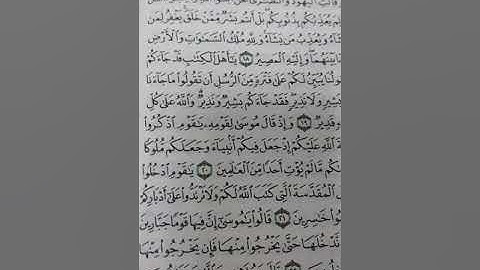 قَالَتِ الْيَهُودُ وَالنَّصَٰرَىٰ نَحْنُ
لِمَ يُعَذِّبُكُم بِذُنُوبِكُم بَلْ أَنتُم بَشَرٌ مِّمَّنْ خَلَقَ يَغْفِرُ لِمَن
شَاءُ وَيُعَذِّبُ مَن يَشَاءُ وَلِلَّهِ مُلْكُ السَّمَٰوَٰتِ وَالْأَرْضِ
مَا بَيْنَهُمَا وَإِلَيْهِ الْمَصِيرُ ١٨ يَٰأَهْلَ الْكِتَٰبِ قَدْ جَاءَكُمْ
سُولُنَا يُبَيِّنُ لَكُمْ عَلَىٰ فَتْرَةٍ مِّنَ الرُّسُلِ أَن تَقُولُوا مَا جَاءَنَا
بَشِيرٍ وَلَا نَذِيرٍ فَقَدْ جَاءَكُم بَشِيرٌ وَنَذِيرٌ وَاللَّهُ عَلَىٰ كُلِّ
قَدِيرٌ ١٩ وَإِذْ قَالَ مُوسَىٰ لِقَوْمِهِ يَٰقَوْمِ اذْكُرُوا
ةَ اللَّهِ عَلَيْكُمْ إِذْ جَعَلَ فِيكُمْ أَنبِيَاءَ وَجَعَلَكُم مُّلُوكًا
كُم مَّا لَمْ يُؤْتِ أَحَدًا مِّنَ الْعَٰلَمِينَ ٢٠ يَٰقَوْمِ ادْخُلُوا
الْمُقَدَّسَةَ الَّتِي كَتَبَ اللَّهُ لَكُمْ وَلَا تَرْتَدُّوا عَلَىٰ أَدْبَارِكُمْ
وا خَٰسِرِينَ ٢١ قَالُوا يَٰمُوسَىٰ إِنَّ فِيهَا قَوْمًا جَبَّارِينَ
نَّدْخُلَهَا حَتَّىٰ يَخْرُجُوا مِنْهَا فَإِن يَخْرُجُوا مِنْهَا